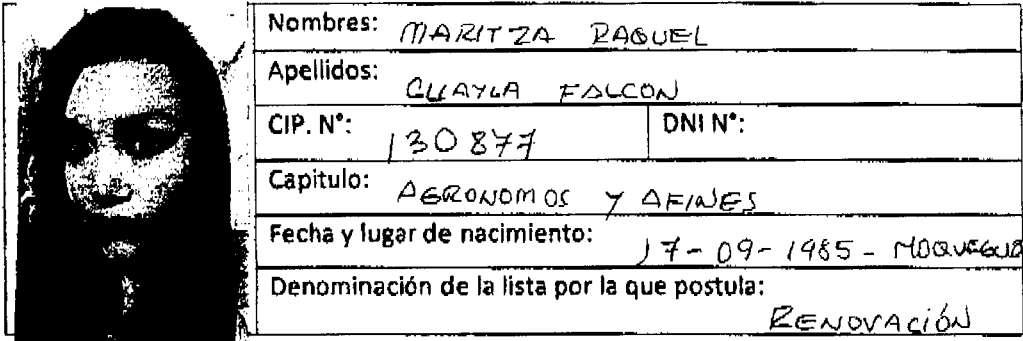 Nombres: MARITZA RAQUEL
Apellidos: CUAYLA FALCON
CIP. N°: 130877 DNI N°:
Capitulo: AGRONOMOS Y AFINES
Fecha y lugar de nacimiento: 17-09-1985 - MOQUEGUA
Denominación de la lista por la que postula:
RENOVACIÓN